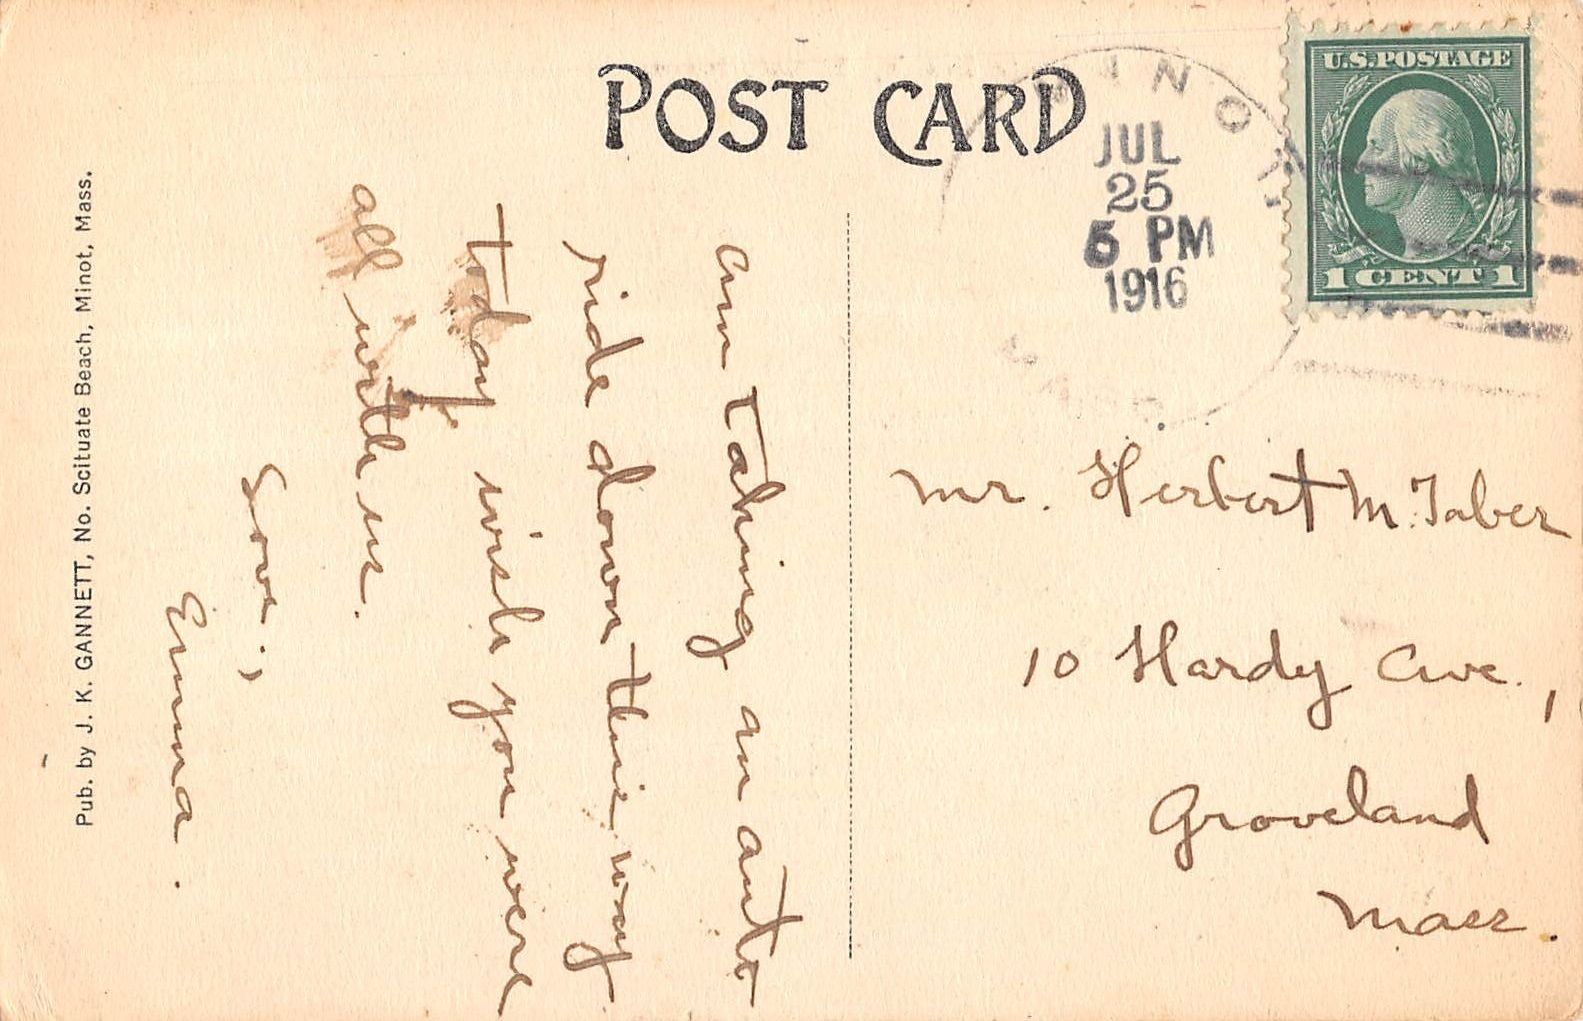 POST CARD
MINOT
JUL
25
5 PM
1916
MASS.
U.S. POSTAGE
1 CENT 1
am taking an auto
ride down this way
today wish you were
all with us.
Love,
Emma.
Mr. Herbert M. Taber
10 Hardy Ave.,
Groveland
Mass.
Pub. by J. K. GANNETT, No. Scituate Beach, Minot, Mass.